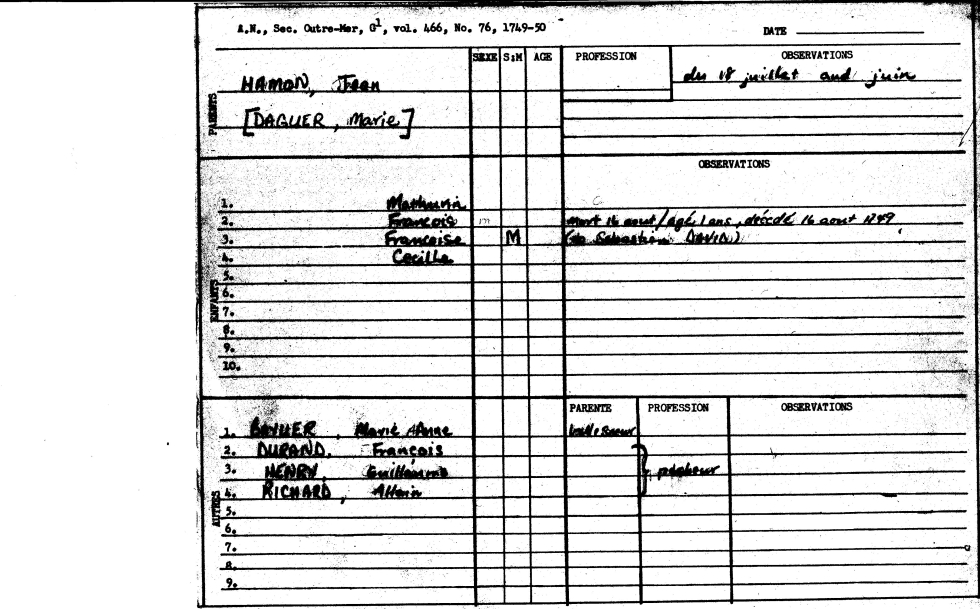 A.N., Sec. Outre-Mer, G1, vol. 466, No. 76, 1749-50
DATE
SEXE S:M AGE PROFESSION OBSERVATIONS
PARENTS
HAMON, Jean du 18 juillet and juin
[DAGUER, Marie]
OBSERVATIONS
ENFANTS
1. Mathurin
2. François m mort 16 aout/agé 1 ans, décédé 16 aout 1749
3. Francoise M (to Sebastien DAVID)
4. Cecille
5.
6.
7.
8.
9.
10.
PARENTE PROFESSION OBSERVATIONS
AUTRES
1. Marie Anne belle soeur
2. DURAND, François
3. HENRY, Guillaume } pêcheur
4. RICHARD, Allain
5.
6.
7.
8.
9.